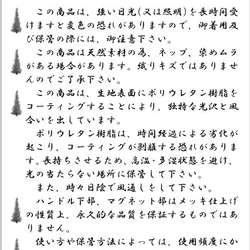 この商品は、強い日光(又は照明)を長時間受
けますと変色の恐れがありますので、御着用及
び保管の際には、御注意下さい。
この商品は天然素材の為、ネップ、染めムラ
がある場合があります。織りキズではありませ
んのでご了承下さい。
この商品は、生地表面にポリウレタン樹脂を
コーティングすることにより、独特な光沢と風
合いを出しています。
ポリウレタン樹脂は、時間経過による劣化が
起こり、コーティングが剥離する恐れがありま
す。長持ちさせるため、高温・多湿状態を避け、
光の当たらない場所に保管して下さい。
また、時々日陰で風通しをして下さい。
ハンドル下部、マグネット部はメッキ仕上げ
の性質上、永久的な品質を保証するものではあ
りません。
使い方や保管方法によっては、使用頻度にか